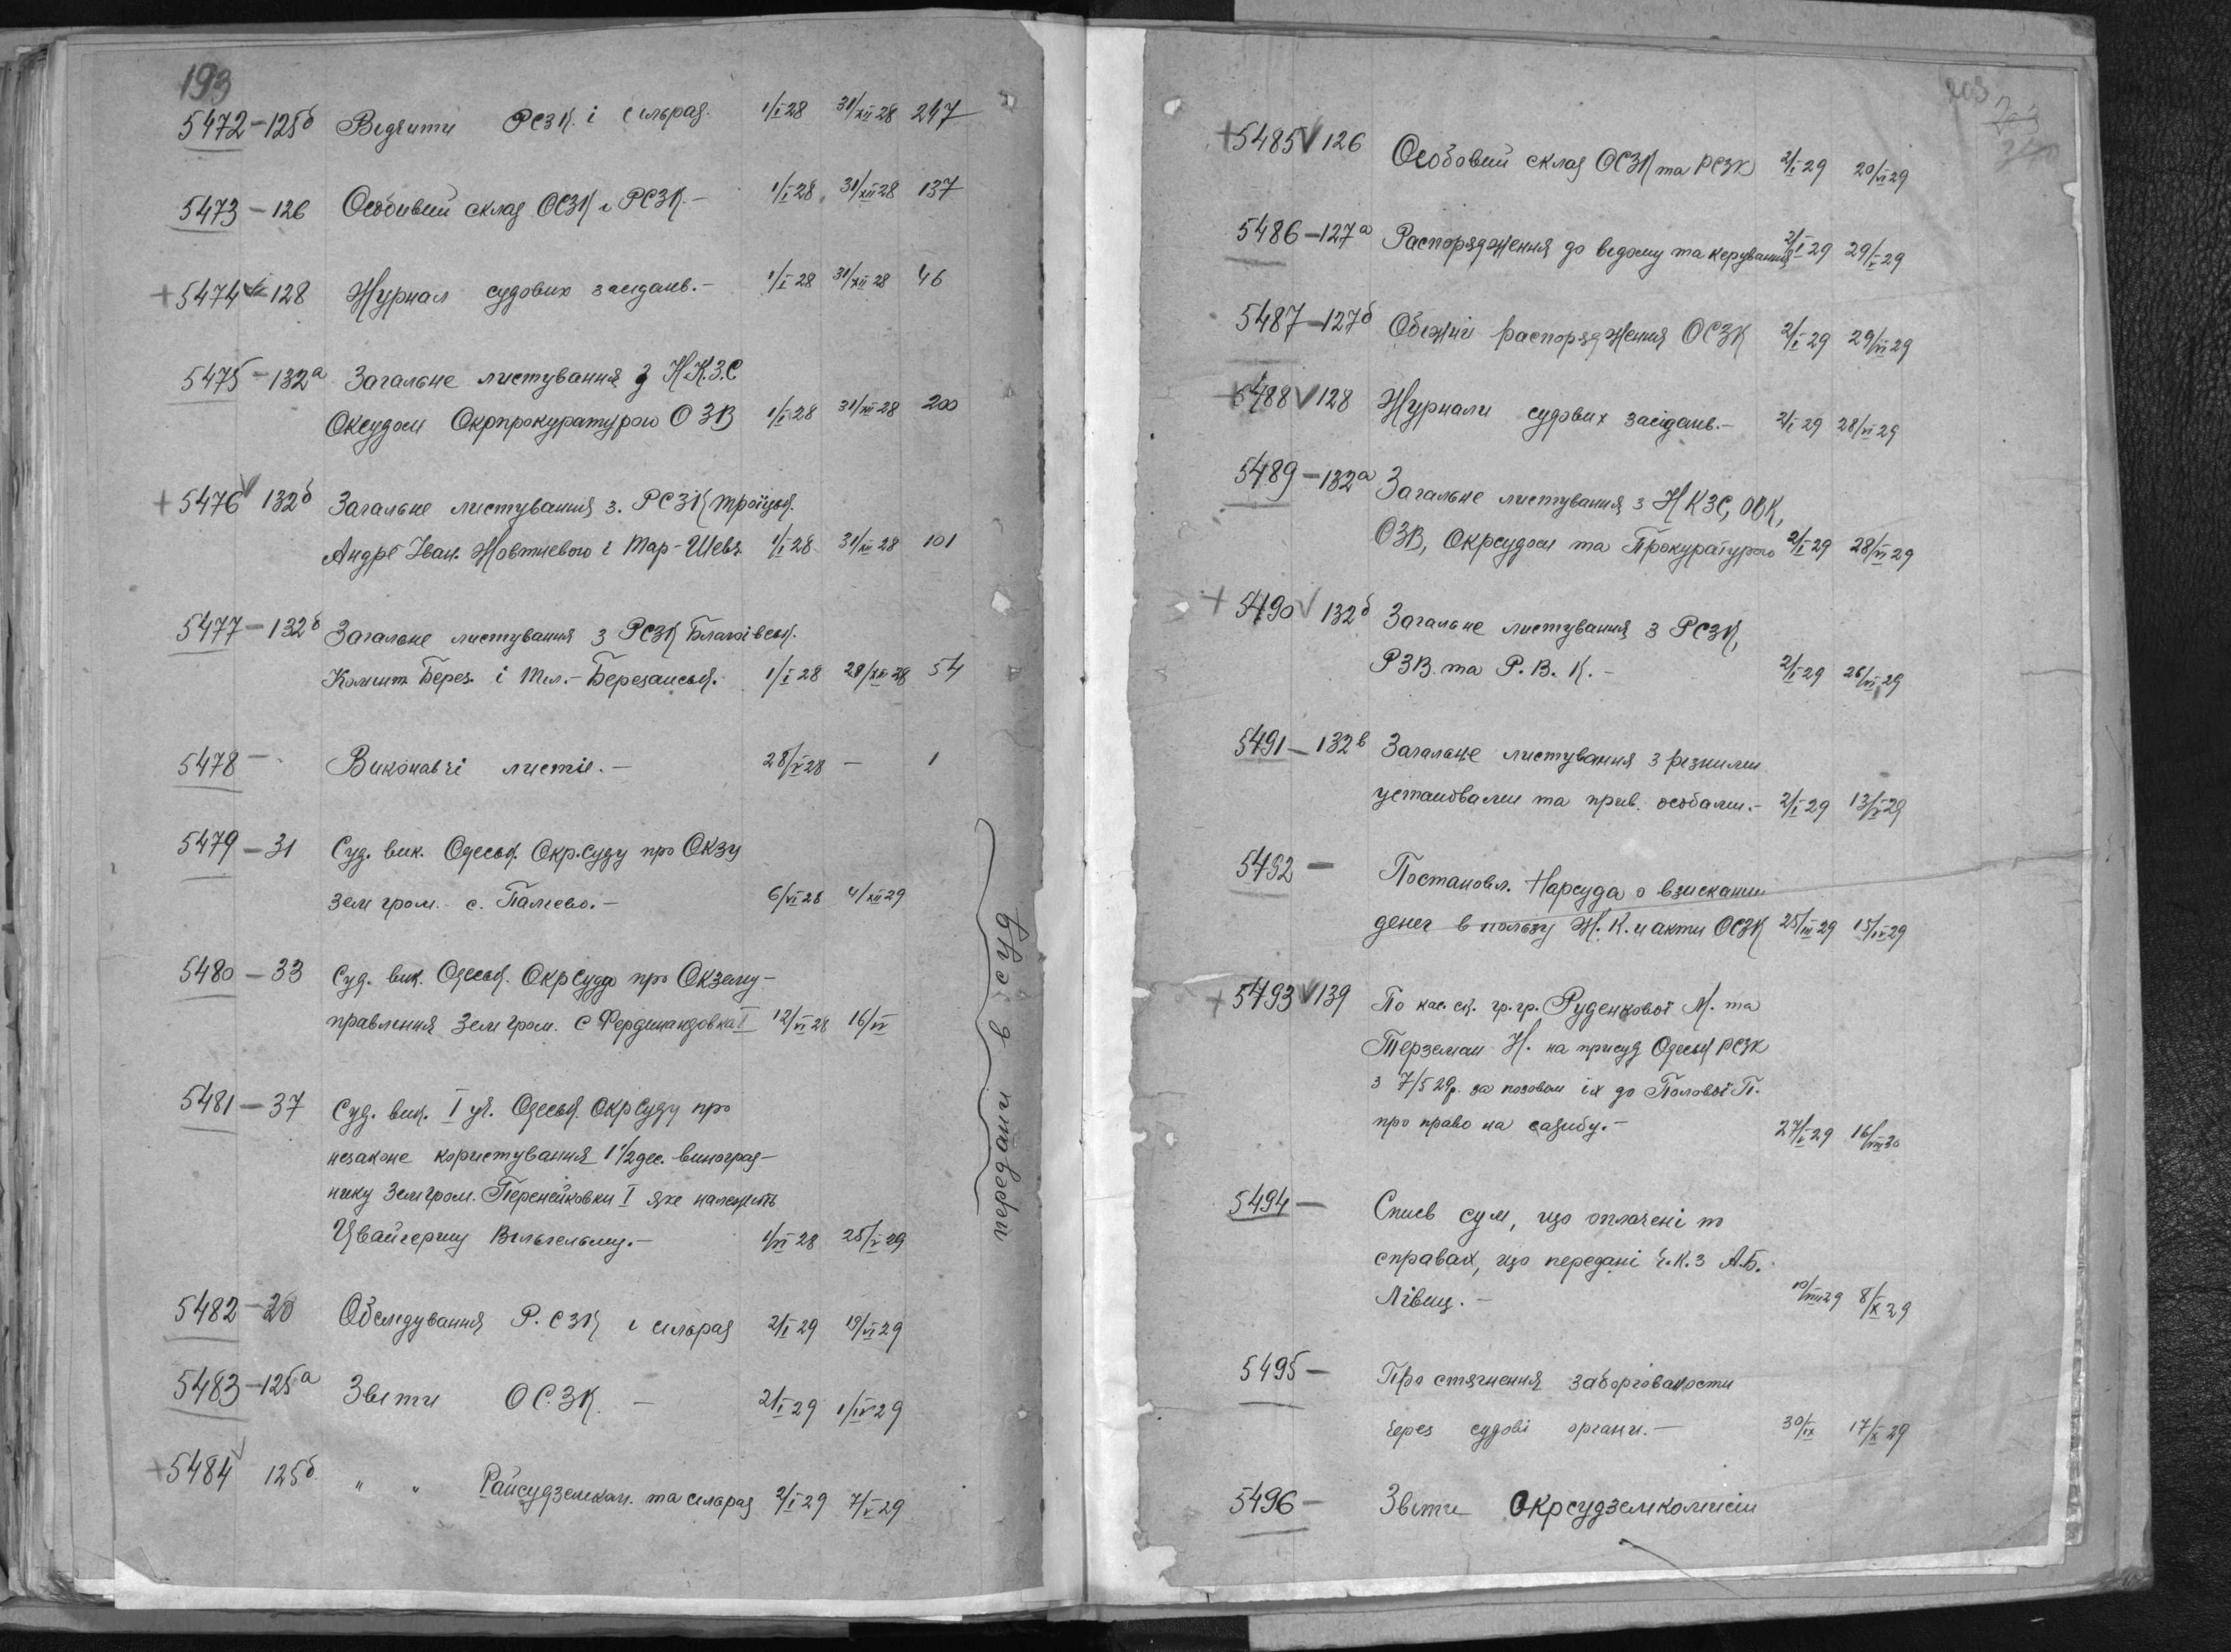 193
5472 - 125б Видчити РСЗК. і сільрад. 1/I 28 31/XII 28 247
5473 - 126 Особивий склад ОСЗК і РСЗК. - 1/I 28 31/XII 28 137
+ 5474 V 128 Журнал судових засідань. - 1/I 28 31/XII 28 46
5475 - 132а Загальне листування з Н.К.З.С
Оксудом Окрпрокуратурою ОЗВ 1/I 28 31/XII 28 200
+ 5476 V 132б Загальне листування з. РСЗК Троїцьк.
Андрє Іван. Жовтневого і Тар-Шевч. 1/I 28 31/XII 28 101
5477 - 132б Загальне листування з РСЗК Благоівськ.
Комінт. Берез. і Тил.-Березанськ. - 1/I 28 28/XII 28 54
5478 - Виконавчі листіе. - 28/V 28 - 1
5479 - 31 Суд. вик. Одеськ. Окр.суду про Окзу
зем гром. - с. Палієво. - 6/VI 28 4/XII 29
5480 - 33 Суд. вик. Одеськ. ОкрСуда про Окзему-
правления Зем гром. с Фердинандовка I 12/VI 28 16/IV
5481 - 37 Суд. вик. I уч. Одеськ. ОкрСуду про
незаконе користування 1 1/2 дес. виноград-
нику Земгром. Перенейковки I яке належить
Цвайгерту Вільгельму. - 1/VI 28 25/V 29
5482 - 20 Обслідування Р.СЗК і сільрад 2/I 29 19/VI 29
5483 - 125а Звіти ОСЗК. - 2/I 29 1/IV 29
+ 5484 V 125б " " Райсудземком. та сільрад 2/I 29 7/V 29
передани в суд
203
+ 5485 V 126 Особовий склад ОСЗК та РСЗК 2/I 29 20/VI 29
5486 - 127а Распорядження до ведому та керування 2/I 29 29/V 29
5487 - 127б Обіжні распорядження ОСЗК 2/I 29 29/VI 29
+ 5488 V 128 Журнали судових засідань. - 2/I 29 28/VI 29
5489 - 132а Загальне листування з НКЗС, ОВК,
ОЗВ, Окрсудом та Прокуратурою 2/I 29 28/VI 29
+ 5490 V 132б Загальне листування з РСЗК,
РЗВ. та Р.В.К. - 2/I 29 26/VI 29
5491 - 132в Загальне листування з різними
установами та прив. особами. - 2/I 29 13/V 29
5492 - Постановл. Нарсуда о взискании
денег в пользу Н.К. и акти ОСЗК 25/III 29 15/IV 29
+ 5493 V 139 По кас. ск. гр.гр. Руденкової М. та
Терземан Н. на присуд Одеськ РСЗК
з 7/5 29р. за позовом їх до Полової П.
про право на садибу. - 27/V 29 16/VIII 30
5494 - Спись сум, що оплачені по
справах, що передані Ч.К.З А.Б.
Лівщ. - 10/VIII 29 8/X 29
5495 - Про стягнення заборгованости
через судові органи. - 30/IX 17/X 29
5496 - Звіти Окрсудземкомисии